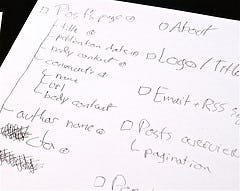 Posts page
title
publication date
body content
comments
name
url
body content
author name
About
Logo/Title
Email + RSS
Posts overview
pagination